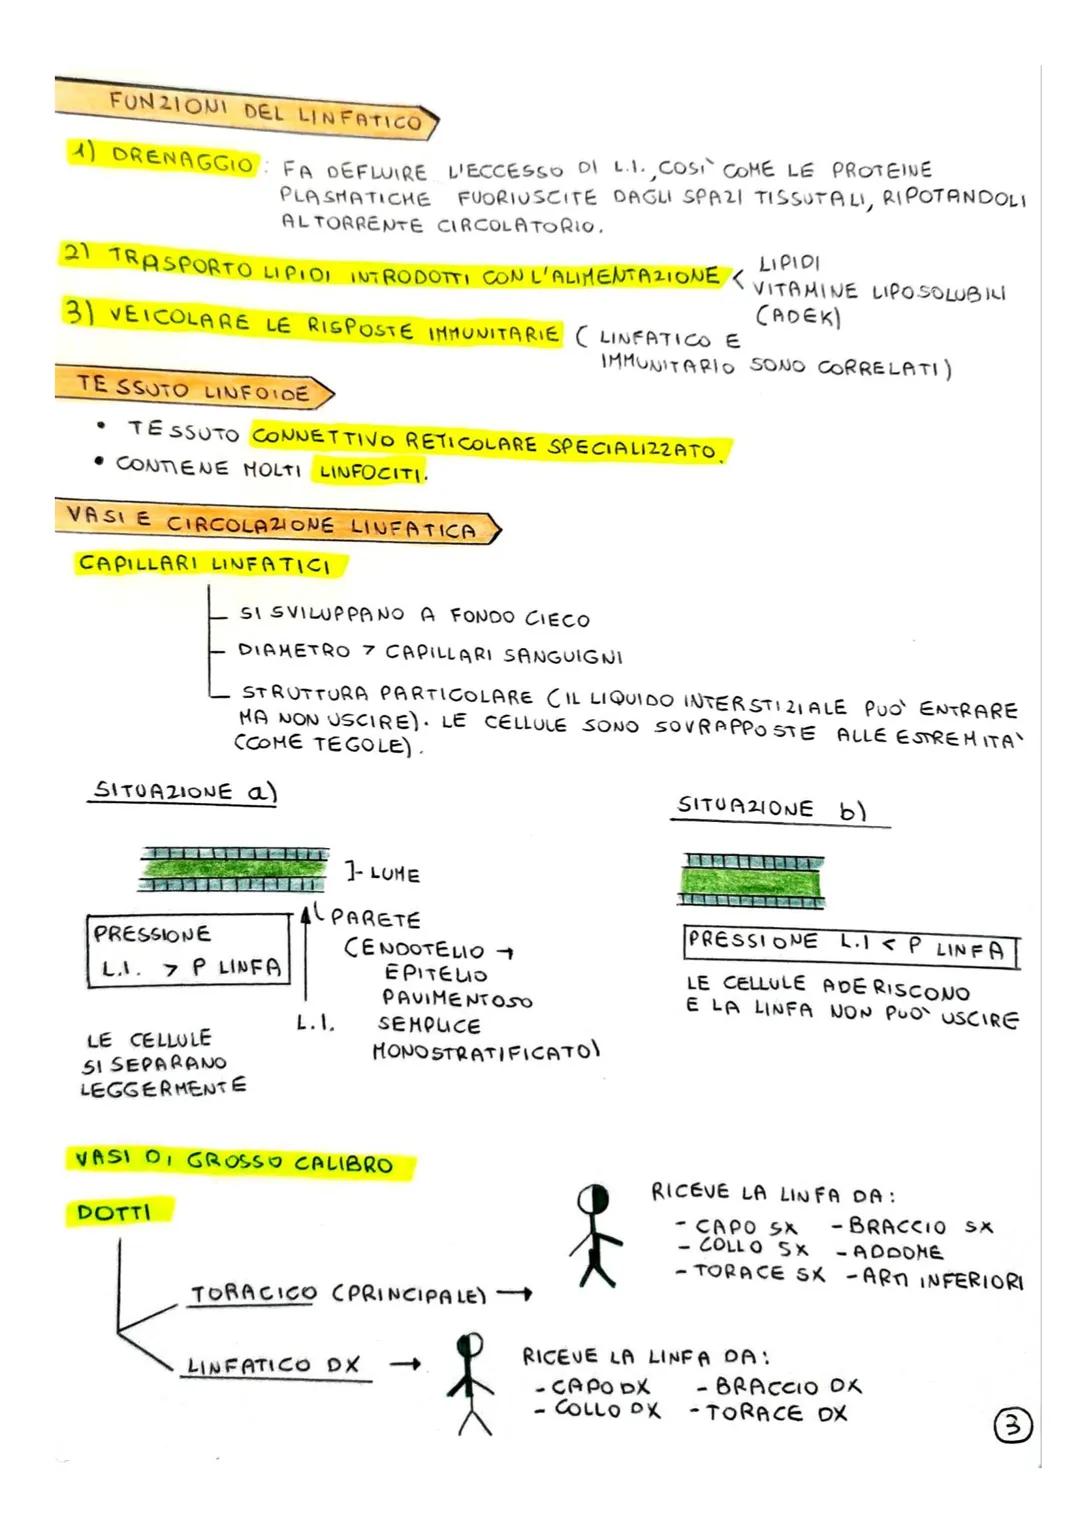 FUNZIONI DEL LINFATICO
1) DRENAGGIO: FA DEFLUIRE L'ECCESSO DI L.I., COSÌ COME LE PROTEINE
PLASMATICHE FUORIUSCITE DAGLI SPAZI TISSUTALI, RIPOTANDOLI
AL TORRENTE CIRCOLATORIO.
2) TRASPORTO LIPIDI INTRODOTTI CON L'ALIMENTAZIONE < LIPIDI
VITAMINE LIPOSOLUBILI
(ADEK)
3) VEICOLARE LE RISPOSTE IMMUNITARIE ( LINFATICO E
IMMUNITARIO SONO CORRELATI)
TESSUTO LINFOIDE
• TESSUTO CONNETTIVO RETICOLARE SPECIALIZZATO.
• CONTIENE MOLTI LINFOCITI.
VASI E CIRCOLAZIONE LINFATICA
CAPILLARI LINFATICI
SI SVILUPPANO A FONDO CIECO
DIAMETRO > CAPILLARI SANGUIGNI
STRUTTURA PARTICOLARE (IL LIQUIDO INTERSTIZIALE PUO' ENTRARE
MA NON USCIRE). LE CELLULE SONO SOVRAPPOSTE ALLE ESTREMITA'
(COME TEGOLE).
SITUAZIONE a)
]- LUME
PARETE
(ENDOTELIO →
EPITELIO
PAVIMENTOSO
SEMPLICE
MONOSTRATIFICATO)
PRESSIONE
L.I. > P LINFA
L.I.
LE CELLULE
SI SEPARANO
LEGGERMENTE
SITUAZIONE b)
PRESSIONE L.I < P LINFA
LE CELLULE ADERISCONO
E LA LINFA NON PUO' USCIRE
VASI DI GROSSO CALIBRO
DOTTI
TORACICO (PRINCIPALE) →
RICEVE LA LINFA DA:
- CAPO SX - BRACCIO SX
- COLLO SX - ADDOME
- TORACE SX - ARTI INFERIORI
LINFATICO DX →
RICEVE LA LINFA DA:
- CAPO DX - BRACCIO DX
- COLLO DX - TORACE DX
3